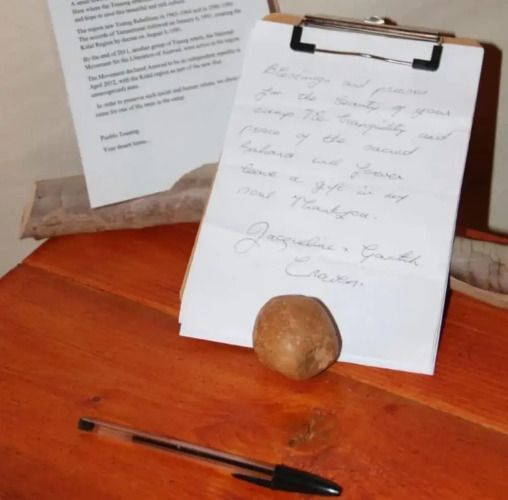 here where the Touareg
and hope to save this beautiful and rich culture.
The region saw Touareg Rebellions in 1962–1964 and in 1990–1996.
The accords of Tamanrasset followed on January 6, 1991, creating the
Kidal Region by decree on August 8, 1991.
By the end of 2011, another group of Touareg rebels, the National
Movement for the Liberation of Azawad, were active in the region.
The Movement declared Azawad to be an independent republic in
April 2012, with the Kidal region as part of the new (but
unrecognized) state.
In order to preserve such social and human values, we
name for one of the tents in the camp.
Pueblo Touareg
Your desert home...
Blessings and praises
for the beauty of your
camp The tranquility and
peace of the sacred
Sahara will forever
leave a gift in my
soul Thankyou.
Jacqueline & Gareth